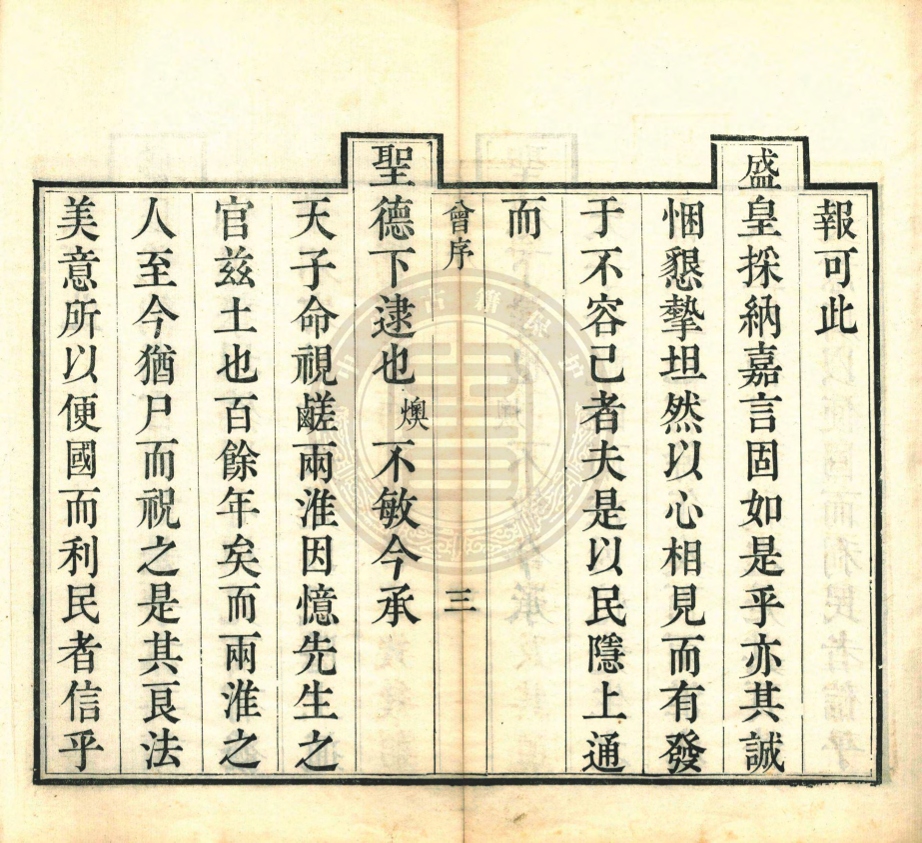 報可此
盛皇採納嘉言固如是乎亦其誠
悃懇摯坦然以心相見而有發
于不容己者夫是以民隱上通
而
曾序 三
聖德下逮也燠不敏今承
天子命視鹺兩淮因憶先生之
官兹土也百餘年矣而兩淮之
人至今猶尸而祝之是其良法
美意所以便國而利民者信乎